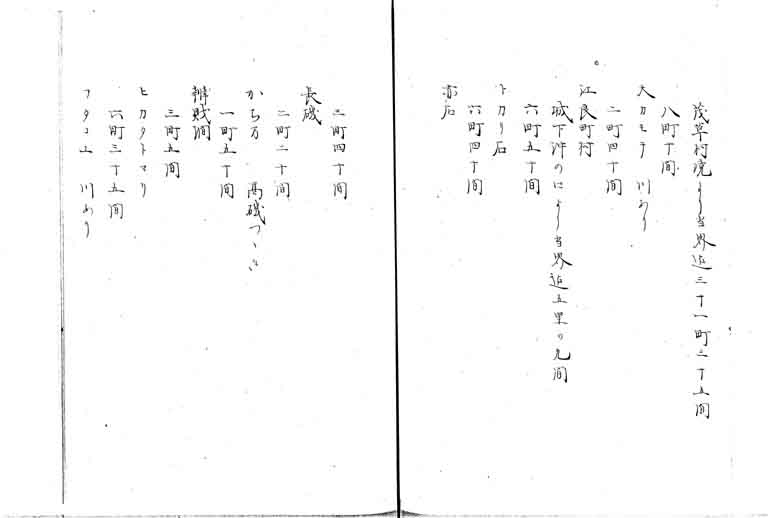 茂草村境より当界迄三十一町三十五間
八町丁間
大カモテ 川あり
二町四十間
江良町村
城下沖のによ〳〵当界迄五里ッ九間
六町五十間
トカリ石
六町四十間
赤石
二町四十間
長磯
二町二十間
かち万 高磯つゝき
一町五十間
辨賎澗
三町五間
ヒカタトマリ
六町三十五間
フタコエ 川あり